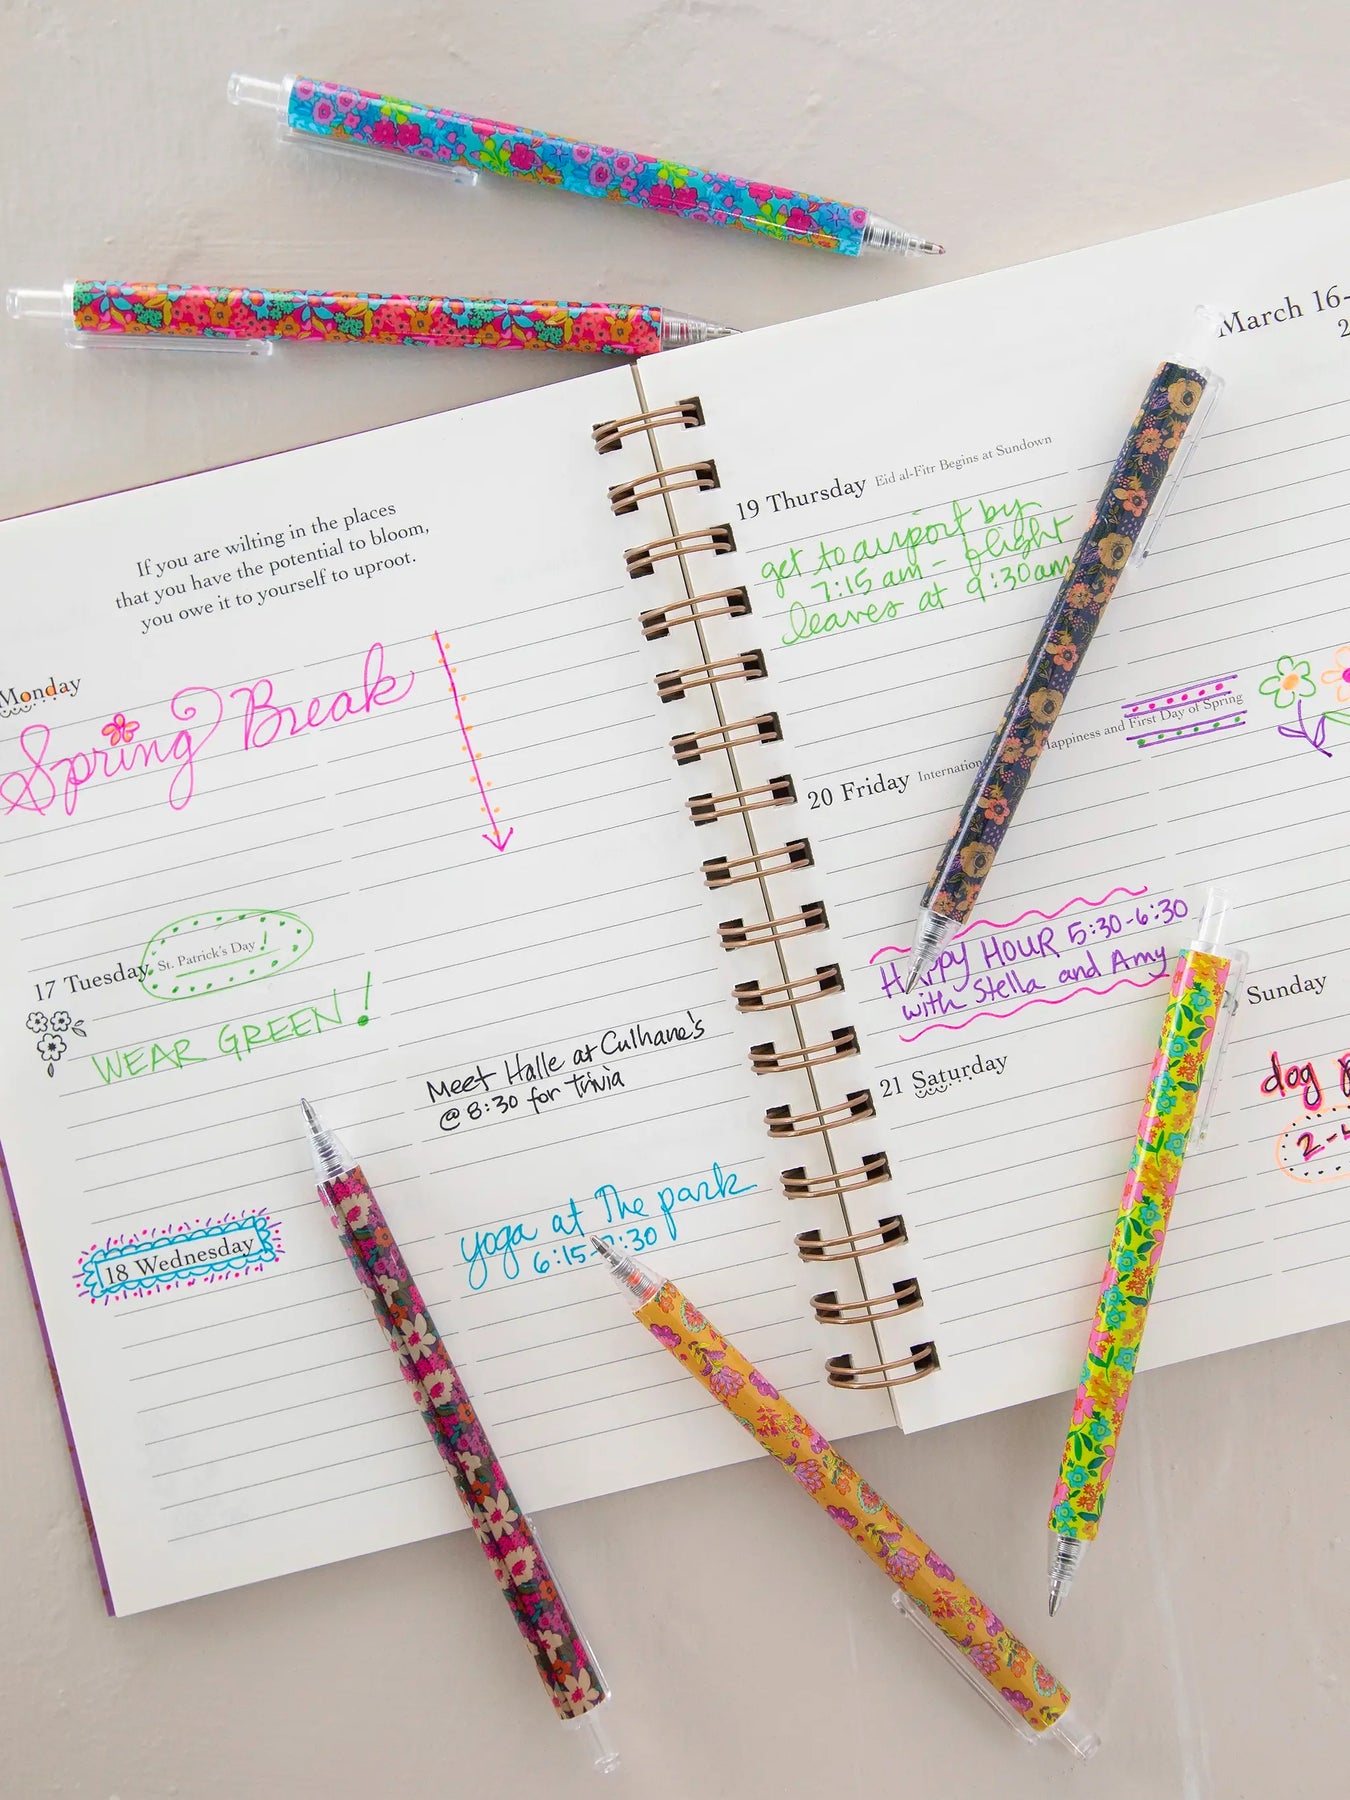 If you are wilting in the places
that you have the potential to bloom,
you owe it to yourself to uproot.
Monday
Spring Break
17 Tuesday St. Patrick's Day !
WEAR GREEN!
Meet Halle at Culhane's
@ 8:30 for trivia
18 Wednesday
yoga at The park
6:15-7:30
March 16-
2
19 Thursday Eid al-Fitr Begins at Sundown
get to airport by
7:15 am - flight
leaves at 9:30am
20 Friday Internation Happiness and First Day of Spring
HAppy HOUR 5:30-6:30
with Stella and Amy
21 Saturday
Sunday
dog
2-4